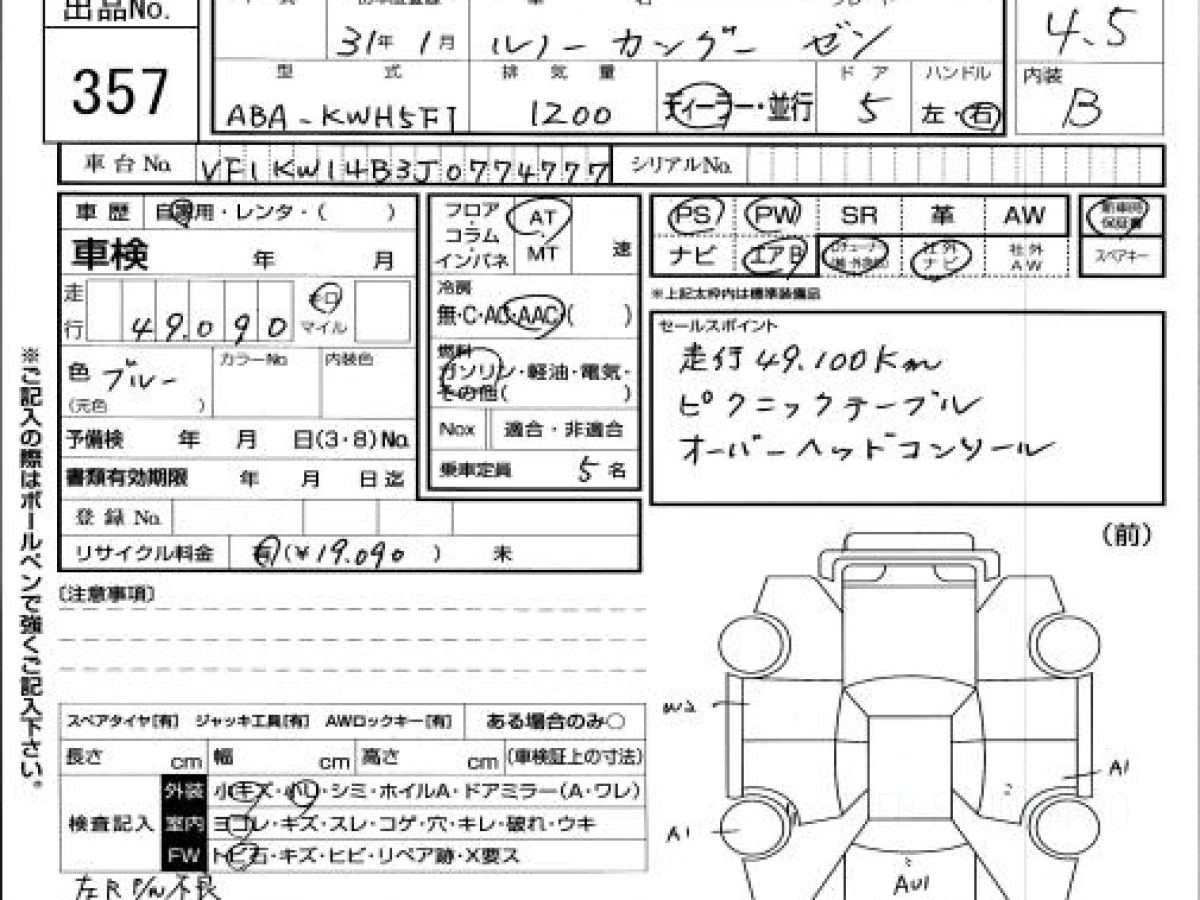 出品No.
357
31年 1月
ルノー カングー ゼン
4.5
型 式
排 気 量
ドア
ハンドル
内装
ABA-KWH5F1
1200
ディーラー・並行
5
左・右
B
車台No.
VF1KW14B3J0774777
シリアルNo.
車歴
自家用・レンタ・( )
車検 年 月
走行
49,090
キロ
マイル
色 ブルー
(元色 )
カラーNo
内装色
予備検 年 月 日(3・8)No.
書類有効期限 年 月 日迄
登録No.
リサイクル料金 有(¥19,090 ) 未
フロア・コラム・インパネ
AT・MT 速
冷房
無・C・AC・AAC( )
燃料
ガソリン・軽油・電気・
その他( )
Nox 適合・非適合
乗車定員 5名
PS PW SR 革 AW
新車時保証書
ナビ エアB
社外ナビ
社外AW
スペアキー
※上記太枠内は標準装備品
セールスポイント
走行49.100Km
ピクニックテーブル
オーバーヘッドコンソール
※ご記入の際はボールペンで強くご記入下さい。
(注意事項)
スペアタイヤ[有] ジャッキ工具[有] AWロックキー[有] ある場合のみ○
長さ cm 幅 cm 高さ cm (車検証上の寸法)
検査記入
外装 小キズ・小凹・シミ・ホイルA・ドアミラー(A・ワレ)
室内 ヨゴレ・キズ・スレ・コゲ・穴・キレ・破れ・ウキ
FW トビ石・キズ・ヒビ・リペア跡・X要ス
左R P/W不良
(前)
W2
A1
A1
AU1